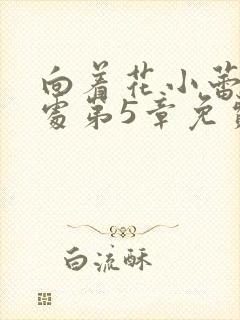 向着花小蕾
处第5章免费
白流酥